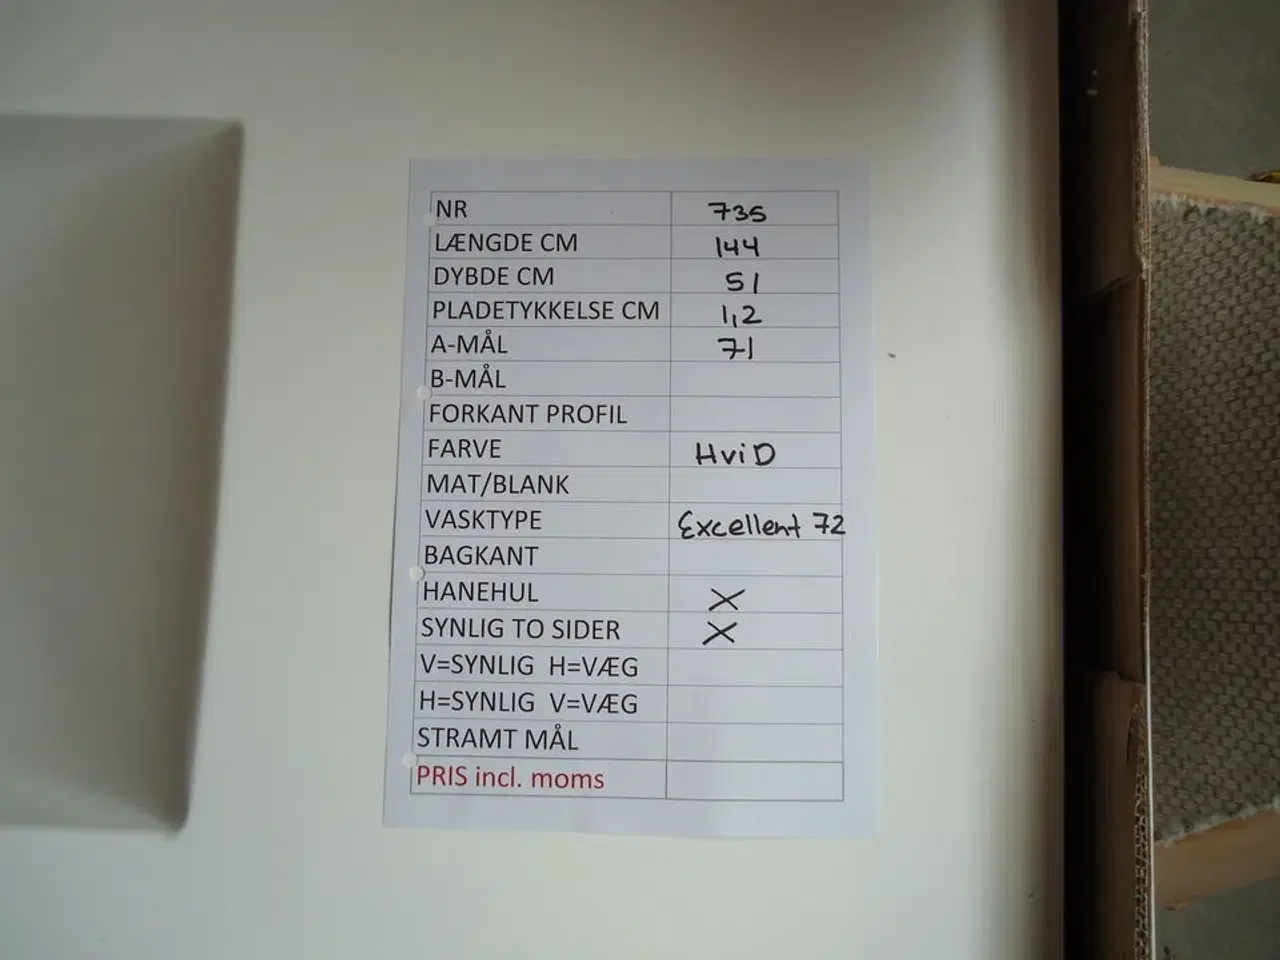 NR 735
LÆNGDE CM 144
DYBDE CM 51
PLADETYKKELSE CM 1,2
A-MÅL 71
B-MÅL
FORKANT PROFIL
FARVE HviD
MAT/BLANK
VASKTYPE Excellent 72
BAGKANT
HANEHUL X
SYNLIG TO SIDER X
V=SYNLIG H=VÆG
H=SYNLIG V=VÆG
STRAMT MÅL
PRIS incl. moms